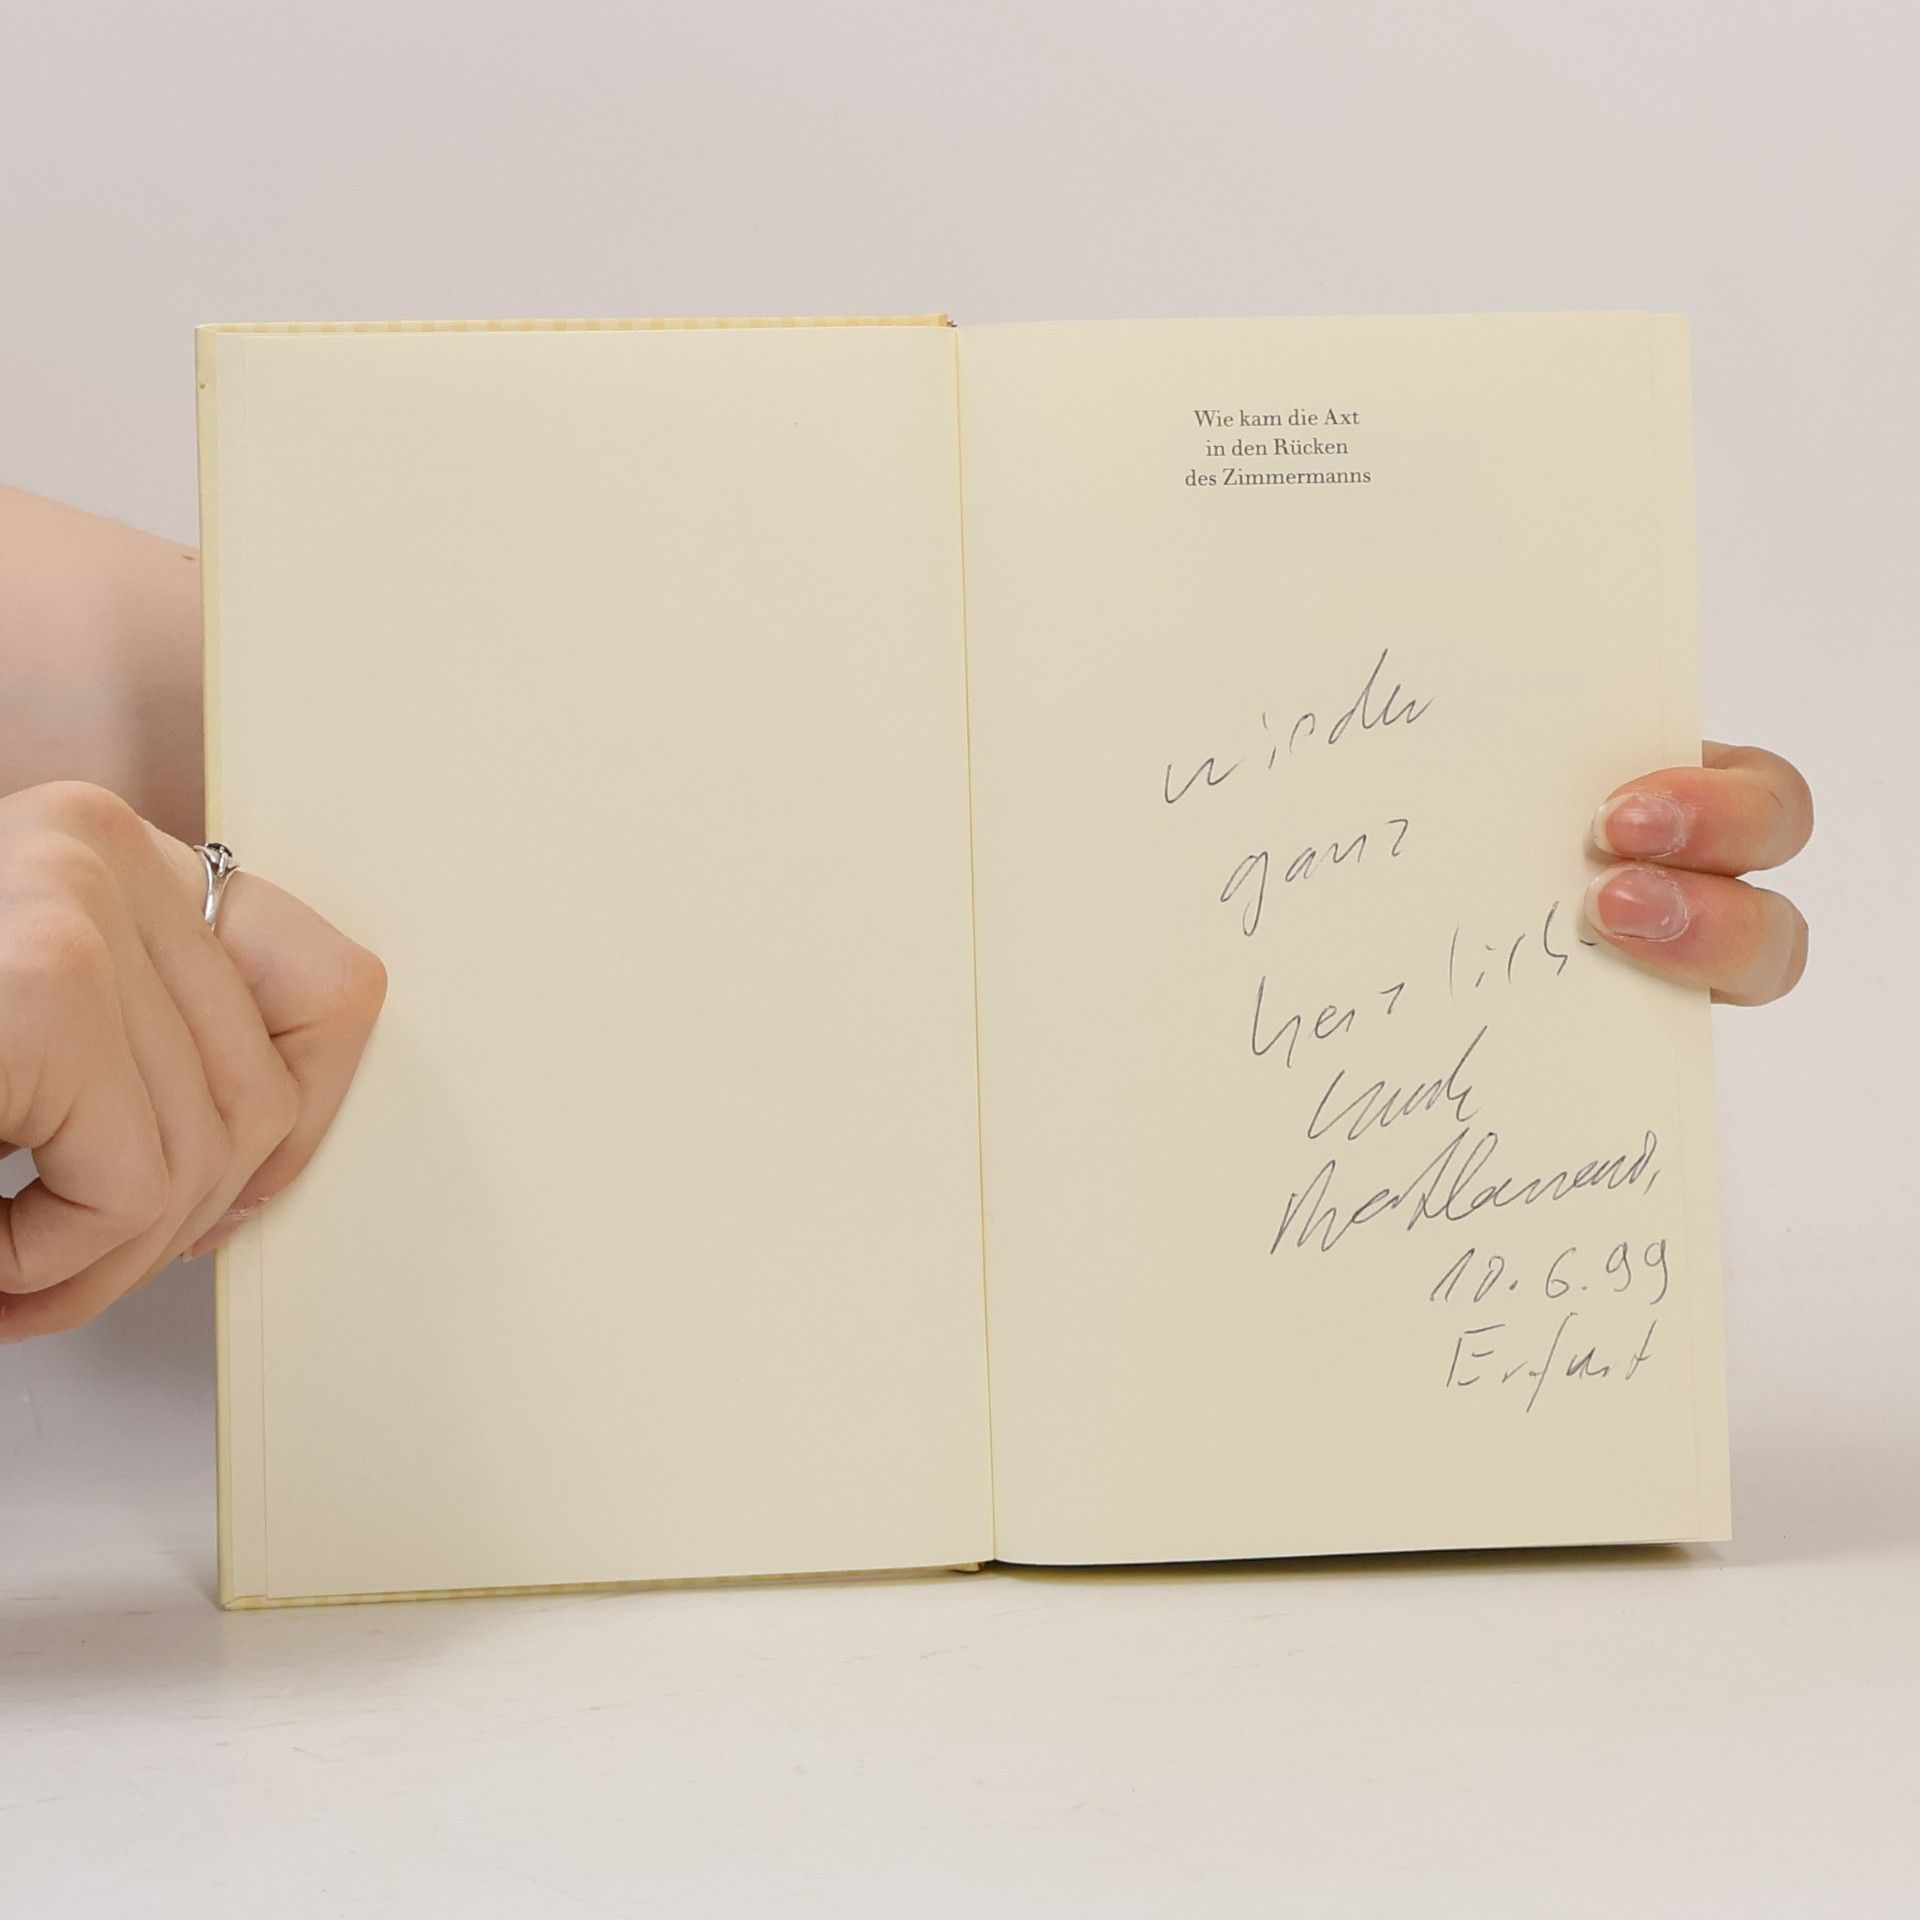 Wie kam die Axt
in den Rücken
des Zimmermanns
wieder
ganz
herzlich
10.6.99
Erfurt